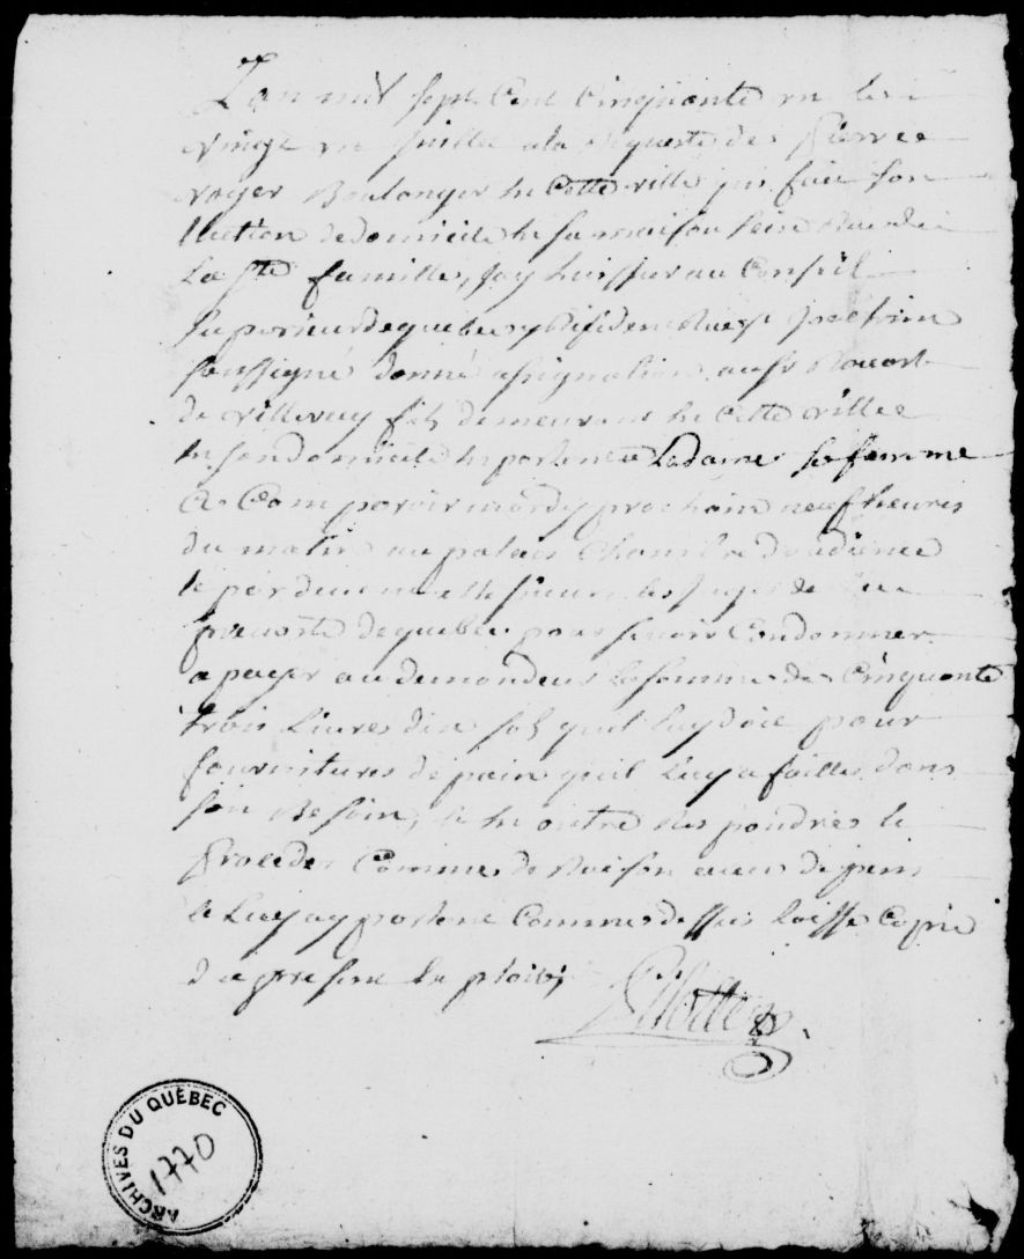 L'an mil sept Cent Cinquante un le
vingt un juillet a la Requeste de pierre
voyer Boulanger en Cette ville qui fait son
Election de domicile en sa maison seize Rue de
La Ste famille, Jay huissier au Conseil
superieur de quebec y Residen Rue
soussigné donné assignation au sr Rouart
de villeray fils demeurant en Cette ville
en son domicile en parlant a Ladame sa femme
a Comparoir mardy prochain neuf heures
du matin au palais Chambre d'audience
le par devant messieurs les Juges de la
prevosté de quebec pour se voir Condamner
a payer au demandeur la somme de Cinquante
trois Livres dix sols quil luy doit pour
fournitures de pain quil Luy a faittes dans
son Besoin, et en outre Repondre et
proceder Comme de Raison avec depens
et Luy ay parlant Comme dessus laissé Copie
du present
ARCHIVES DU QUÉBEC
1770